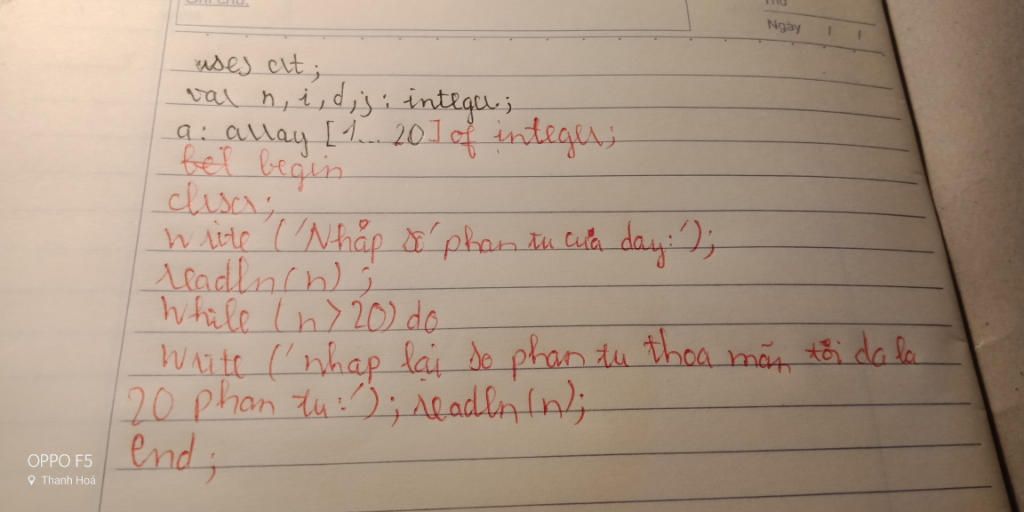 Ghi chú:
Thứ
Ngày
uses crt;
var n, i, d, j : integer;
a : array [1... 20] of integer;
begin
clrscr;
Write ('Nhập số phan tu của day:');
readln(n);
While (n>20) do
Write ('nhap lại so phan tu thoa mãn tối da la
20 phan tu:'); readln(n);
end;
OPPO F5
Thanh Hoá